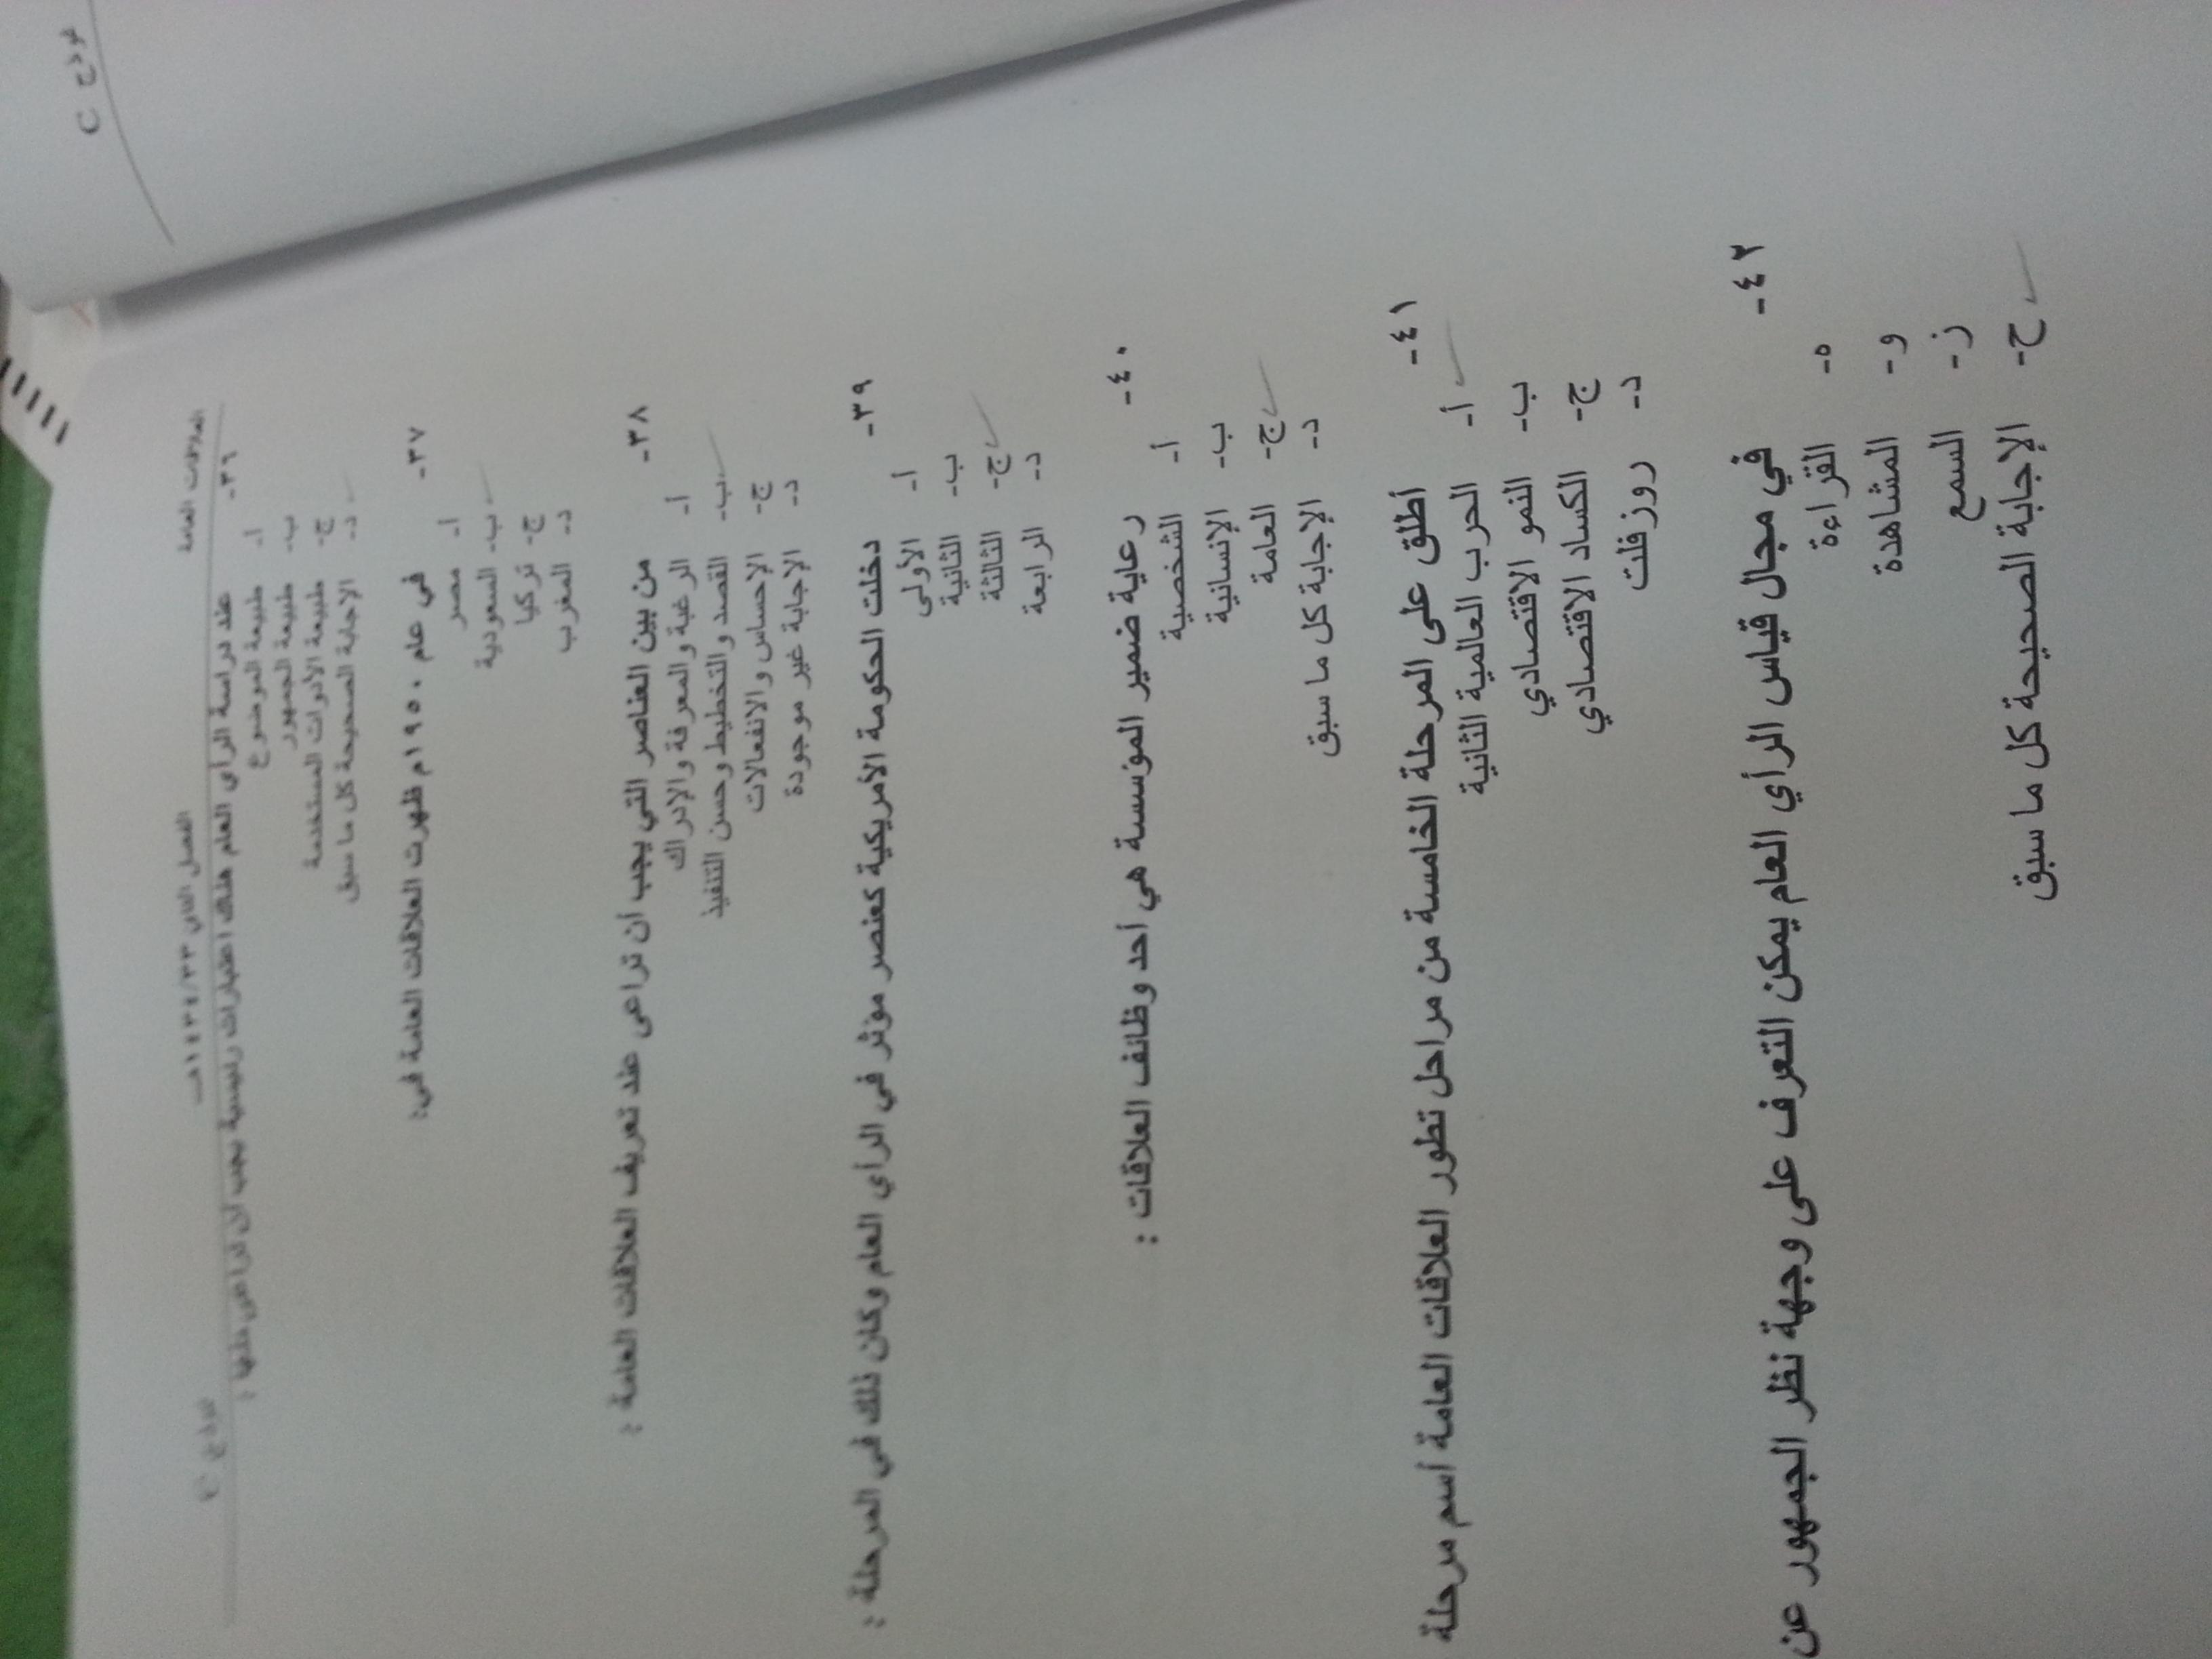 نموذج C
العلاقات العامة الفصل الثاني ١٤٣٤/٣٣هـ نموذج C
٣٦- عند دراسة الرأي العام هناك اعتبارات رئيسية يجب أن تراعى منها :
أ- طبيعة الموضوع
ب- طبيعة الجمهور
ج- طبيعة الأدوات المستخدمة
د- الإجابة الصحيحة كل ما سبق
٣٧- في عام ١٩٥٠م ظهرت العلاقات العامة في:
أ- مصر
ب- السعودية
ج- تركيا
د- المغرب
٣٨- من بين العناصر التي يجب أن تراعى عند تعريف العلاقات العامة :
أ- الرغبة والمعرفة والإدراك
ب- القصد والتخطيط وحسن التنفيذ
ج- الإحساس والانفعالات
د- الإجابة غير موجودة
٣٩- دخلت الحكومة الأمريكية كعنصر مؤثر في الرأي العام وكان ذلك في المرحلة :
أ- الأولى
ب- الثانية
ج- الثالثة
د- الرابعة
٤٠- رعاية ضمير المؤسسة هي أحد وظائف العلاقات :
أ- الشخصية
ب- الإنسانية
ج- العامة
د- الإجابة كل ما سبق
٤١- أطلق على المرحلة الخامسة من مراحل تطور العلاقات العامة أسم مرحلة
أ- الحرب العالمية الثانية
ب- النمو الاقتصادي
ج- الكساد الاقتصادي
د- روزفلت
٤٢- في مجال قياس الرأي العام يمكن التعرف على وجهة نظر الجمهور عن
ه- القراءة
و- المشاهدة
ز- السمع
ح- الإجابة الصحيحة كل ما سبق